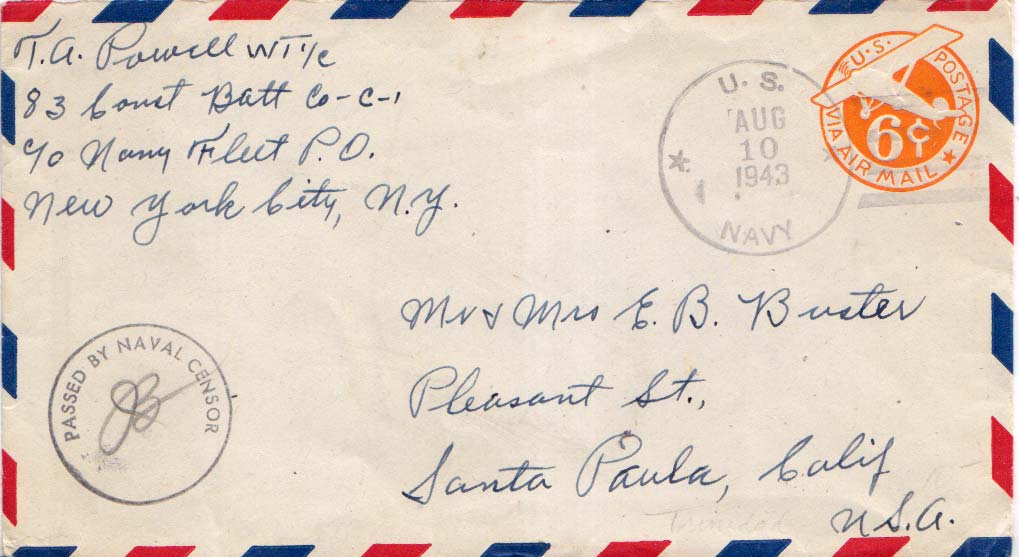 T. A. Powell WT 1/c
83 Const Batt Co-C-1
c/o Navy Fleet P.O.
New York City, N.Y.
U. S.
AUG
10
1943
NAVY
U.S. POSTAGE
6¢
VIA AIR MAIL
Mr & Mrs E. B. Buster
Pleasant St.,
Santa Paula, Calif
U.S.A.
Trinidad
PASSED BY NAVAL CENSOR
JB